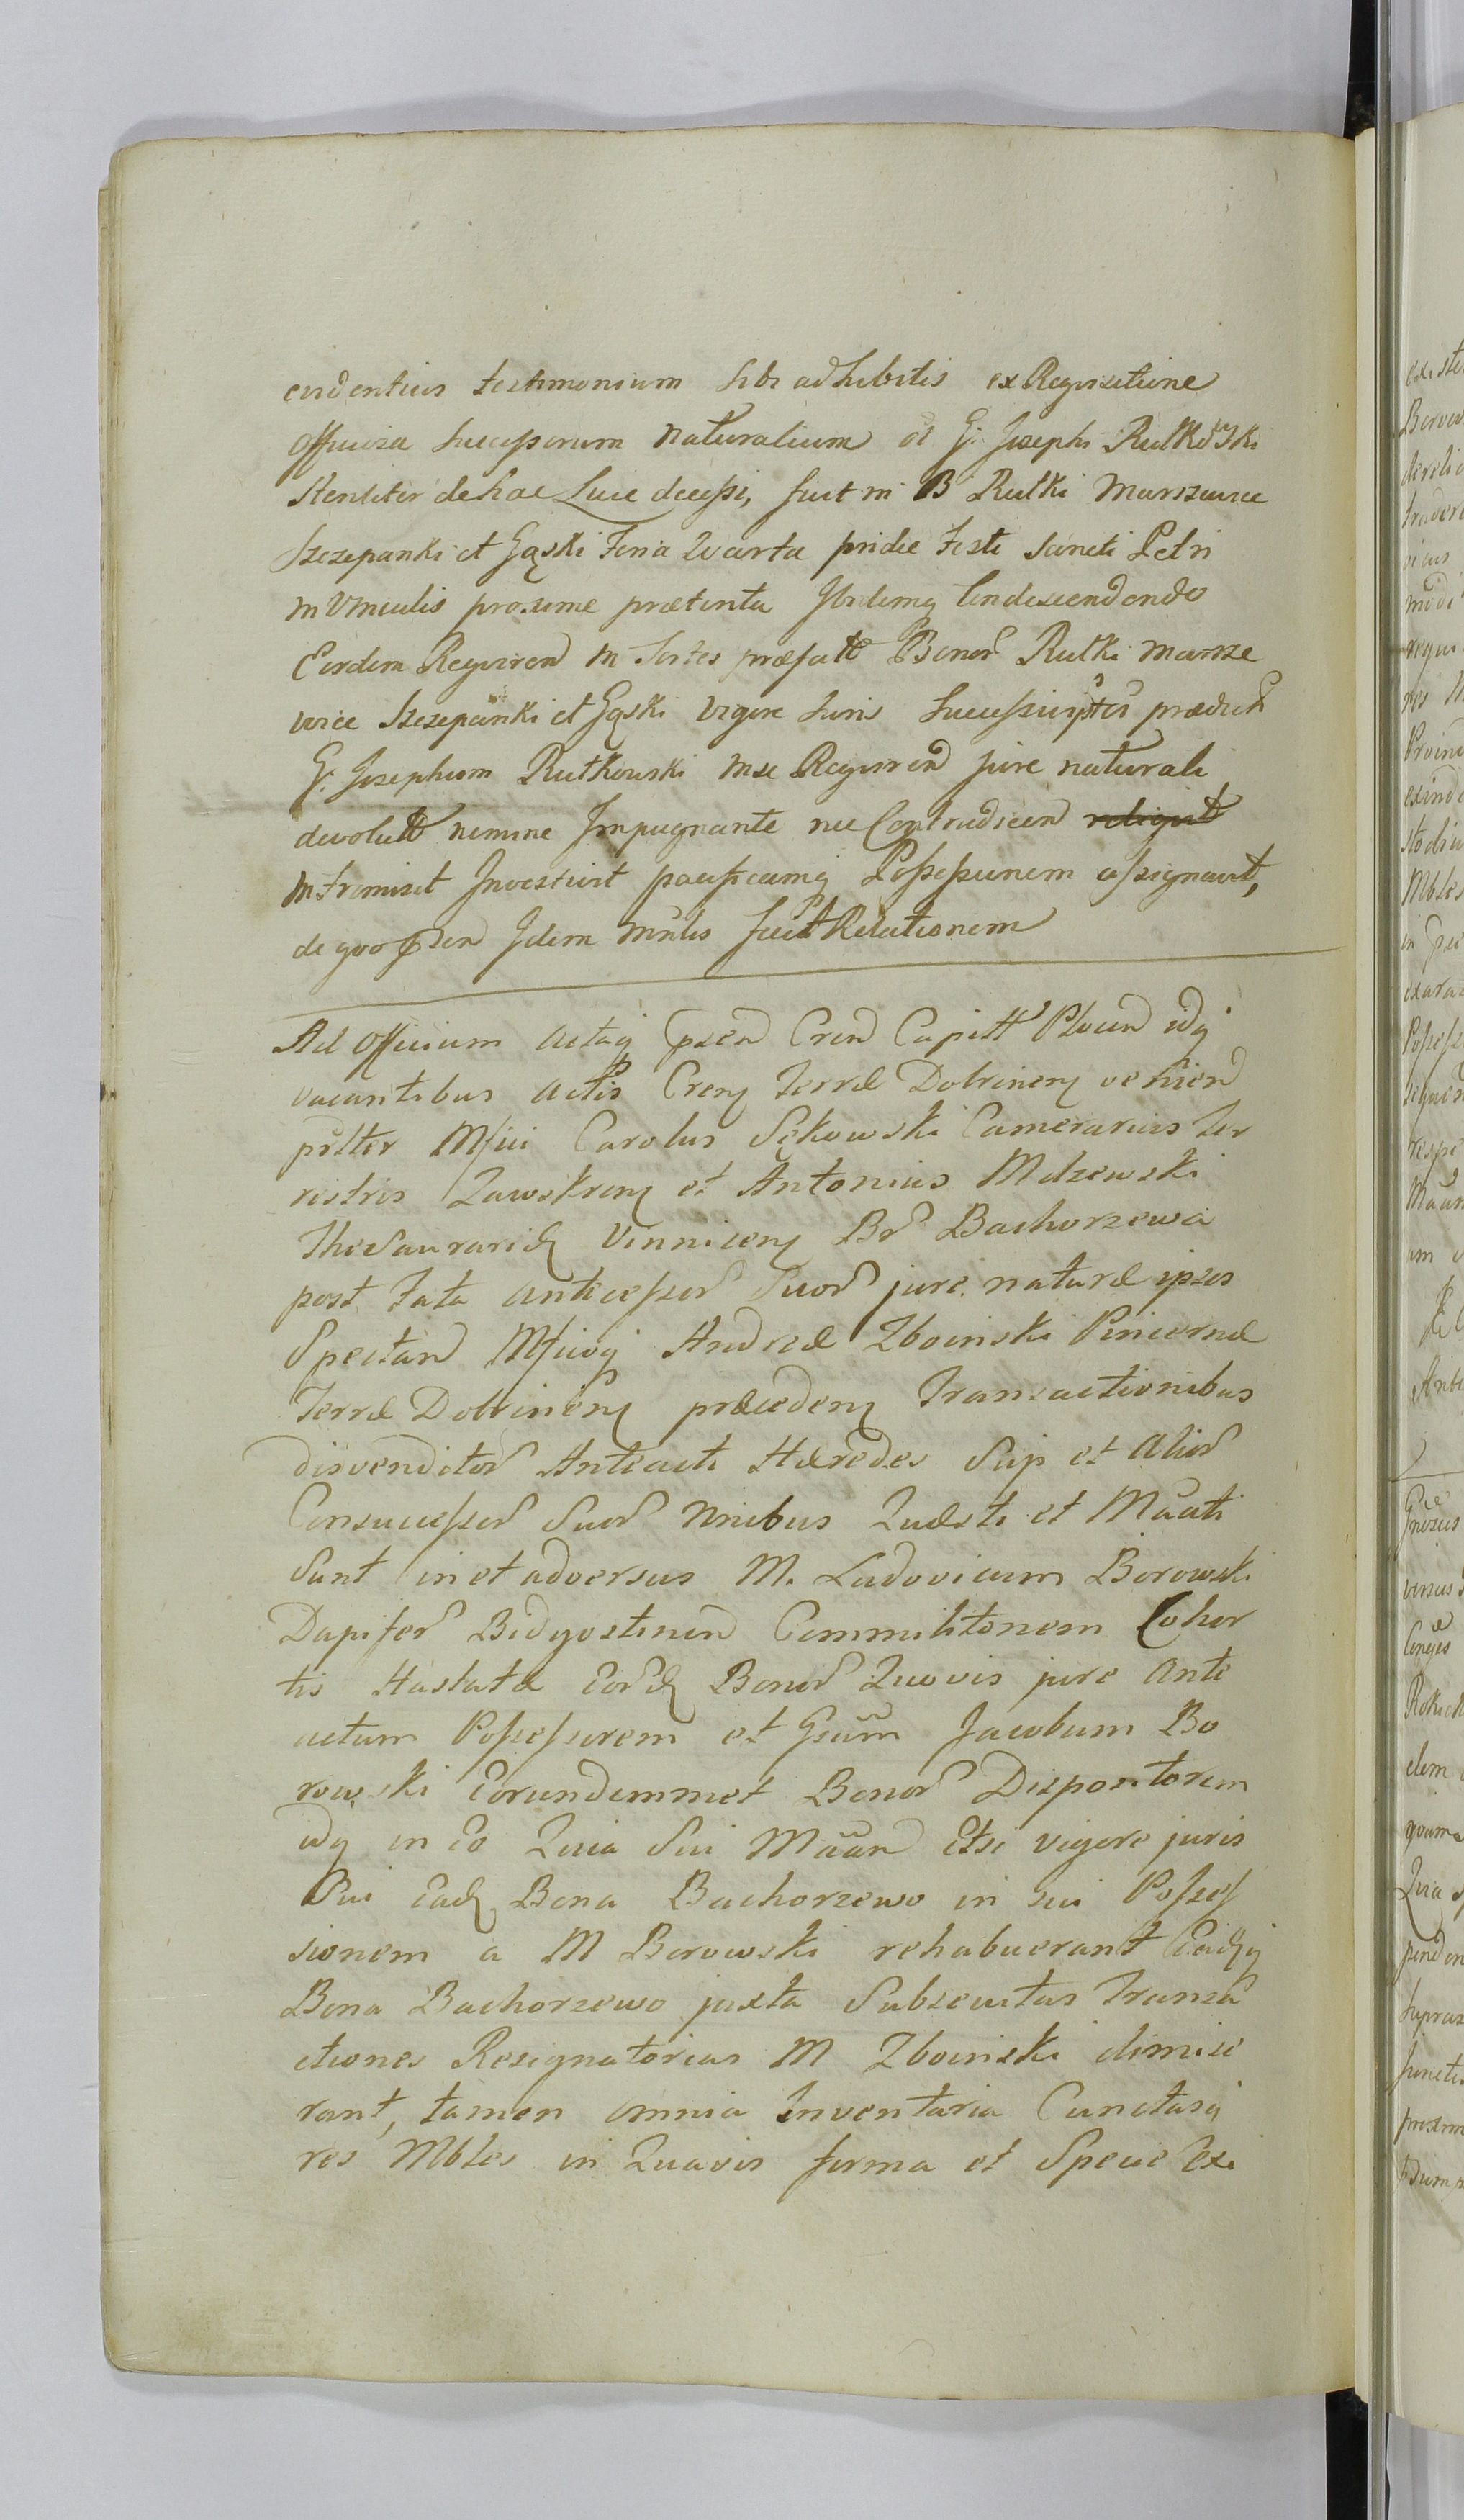 evidentius testimonium sibi adhibitis ex Requisitione
officiosa Successorum Naturalium ol G. Josephi Rutkowski
Steriliter de hac Luce decessi, fuit in B Rutki Marszewice
Szczepanki et Gąski Feria Quarta pridie Festi Sancti Petri
in Vinculis proxime præterita Ibidemq Condescendendo
Eosdem Requiren in Sortes præfatt Bonor Rutki Marsze
wice Szczepanki et Gąski vigore Juris Successivi post prædict
G. Josephum Rutkowski in se Requiren jure naturali
devolutt nemine Impugnante nec Contradicen
intromisit Investivit pacificamq Possessionem assignavit,
de quo præsen Idem Mnlis fecit Relationem
Ad Officium Actaq præsen Cren Capitt Plocen idq
vacantibus Actis Cren Terræ Dobrinen venien
prlter Mfici Carolus Sękowski Camerarius Ter
ristris Zawskren et Antonius Mdzewski
Thesaurarid Vinnicen Br Bachorzewa
post Fata Antecessor Suor jure naturæ ipsos
Spectan Mficoq Andreæ Zboinski Pincernæ
Terræ Dobrinen præceden Transactionibus
disvenditor Anteacti Hæredes Suip et Alior
Consuccessor Suor Nnibus Quæsti et Maati
Sunt in et adversus M. Ludovicum Borowski
Dapifer Bidgostinen Commilitonem Cohor
tis Hastatæ Eord Bonor Quovis jure Ante
actum Possessorem et Gsum Jacobum Bo
rowski Eorundemmet Bonor Dispositorem
idq in eo Quia Sui Maan Etsi vigore juris
Sui Ead Bona Bachorzewo in sui Posses
sionem a M Borowski rehabuerant Eadq
Bona Bachorzewo juxta Subsecutas Transa
ctiones Resignatorias M Zboinski dimise
rant, tamen omnia Inventaria Cunctasq
res Mbles in Quavis forma et Specie Exi